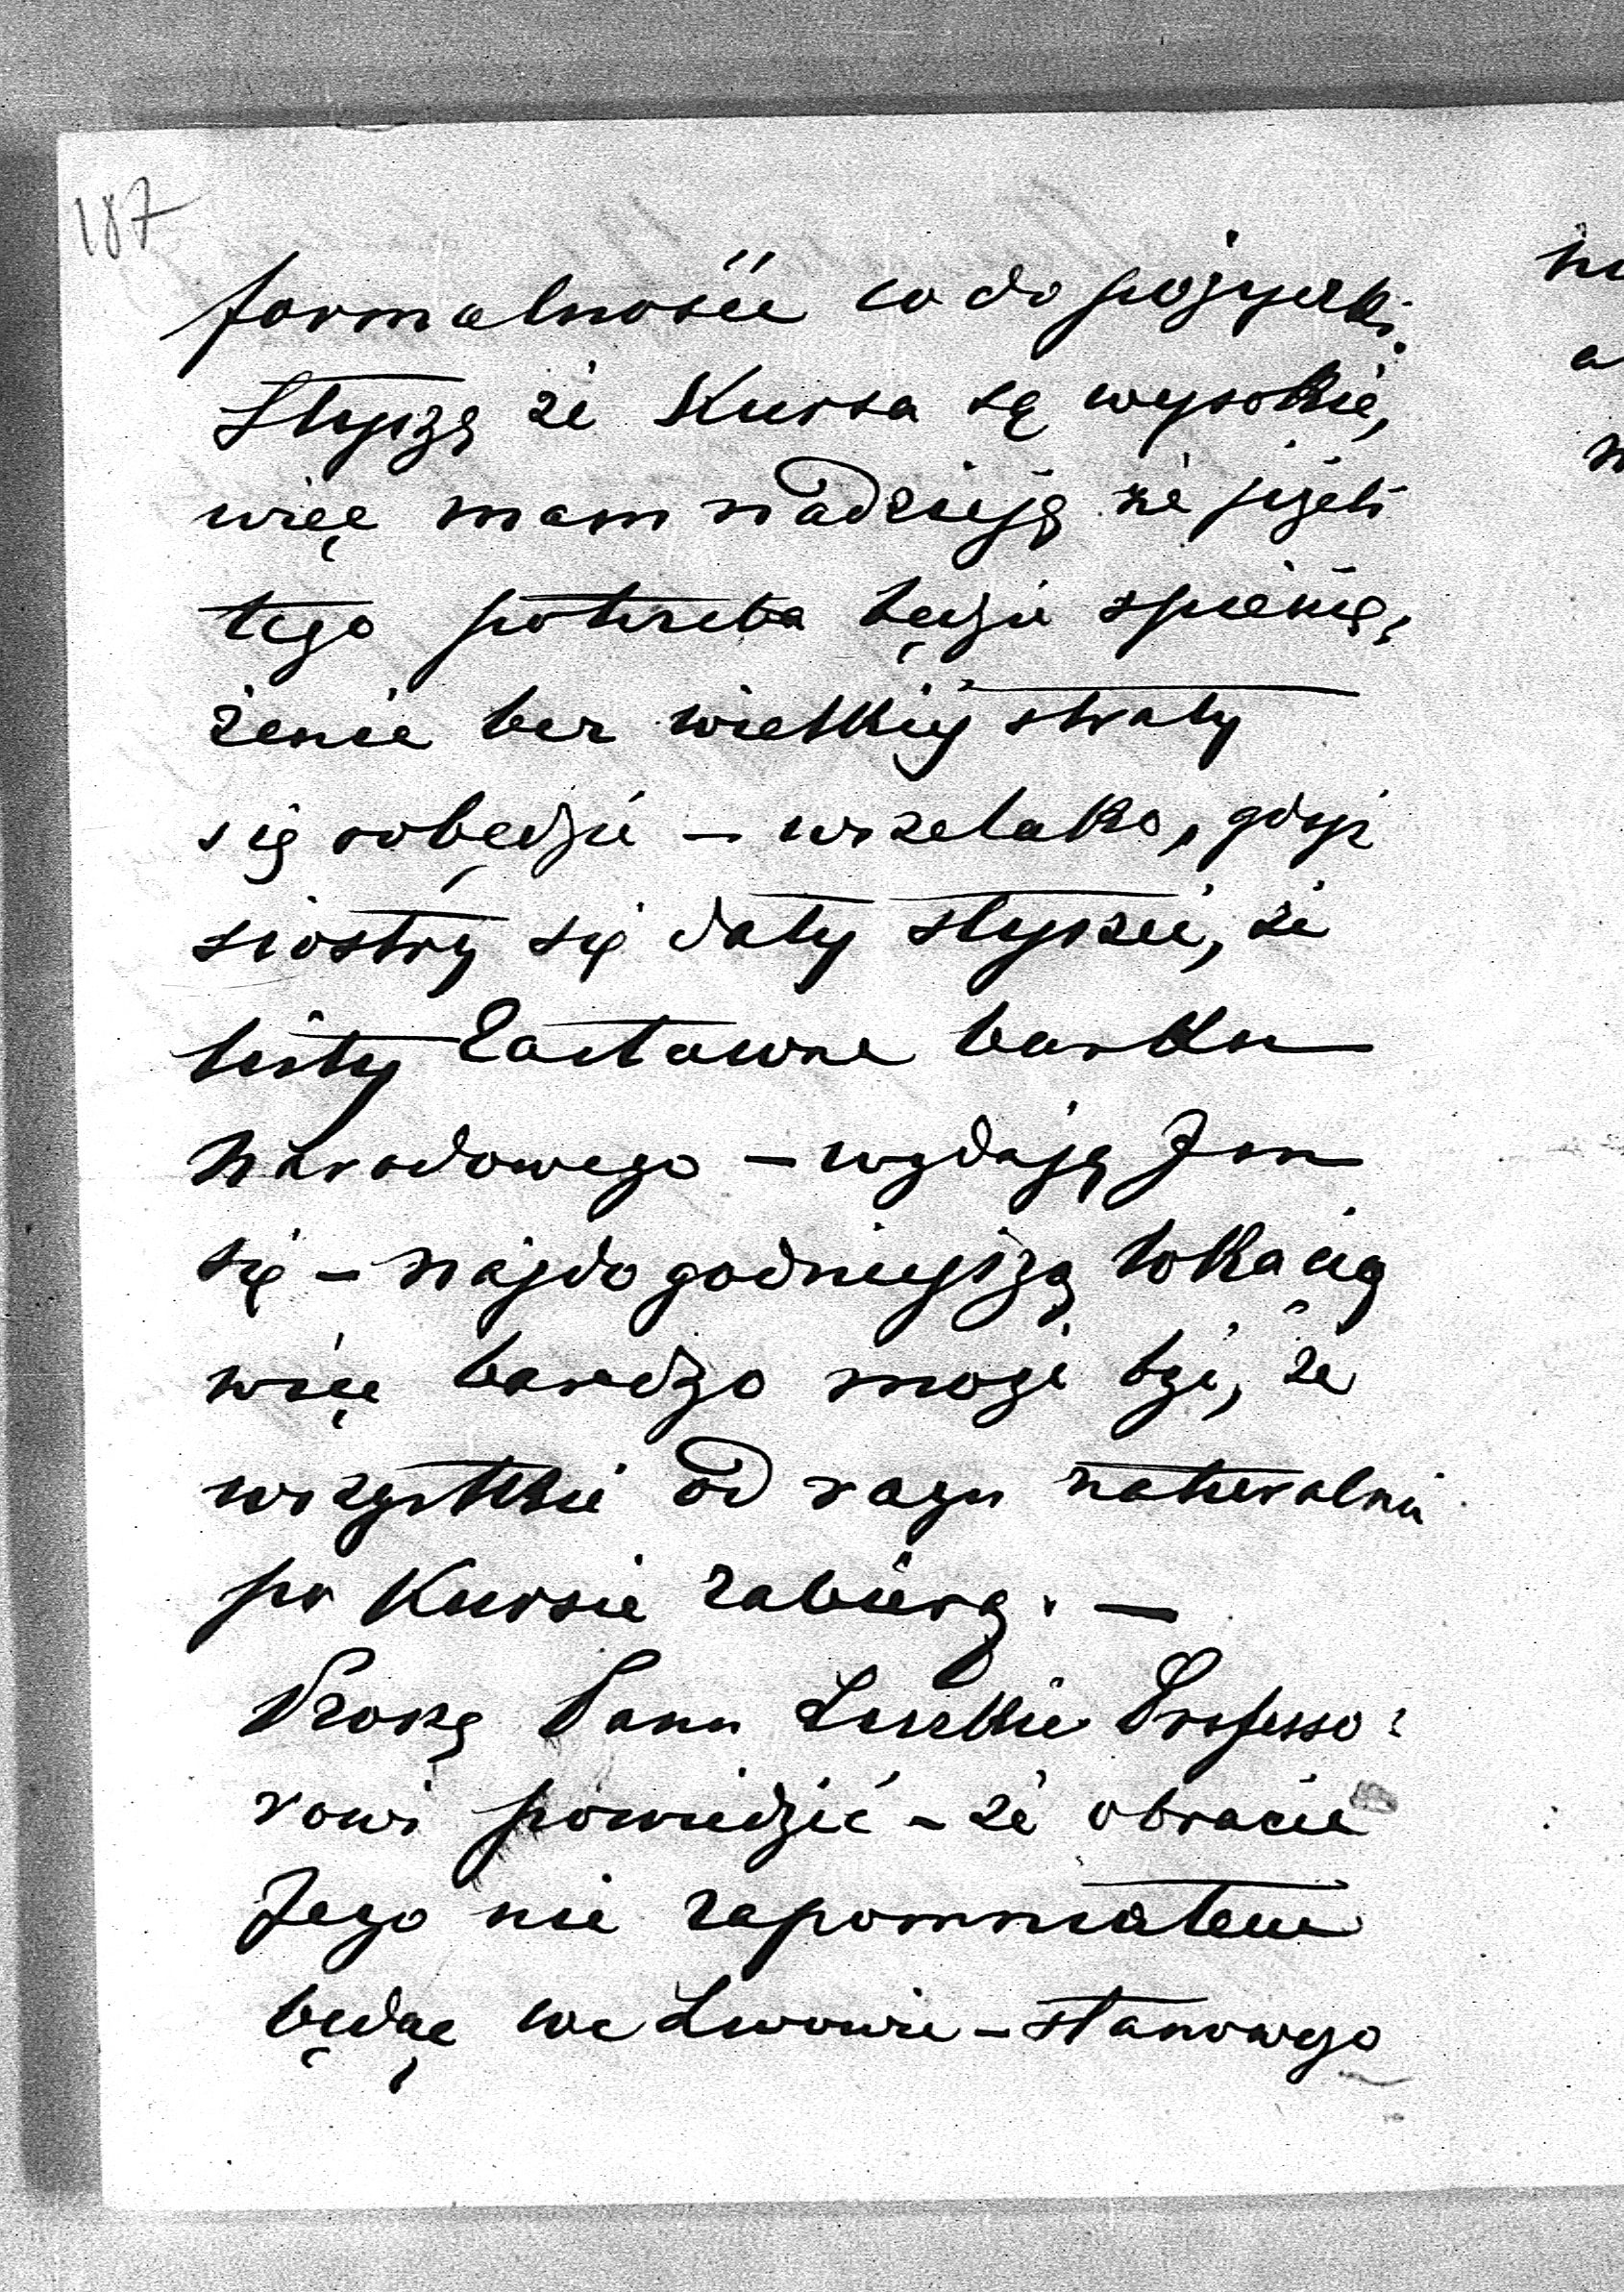 187
formalności co do pożyczki.
Słyszę że Kursa są wysokie,
więc mam nadzieję że jeżeli
tego potrzeba będzie spienię,
żenie bez wielkiéj straty
się robędzie – wszelako, gdyż
siostry się dały słyszeć, że
listy Zastawne banku
Narodowego – wydają Im
się – najdogodniejszą lokacią
więc bardzo może być, że
wszystkie od razu naturalnie
po Kursie zabiorą. —
Proszę Panu Luszkie Professo:
rowi powiedzieć – że obracie
Jego nie zapomniałem
będąc we Lwowie – stanowego